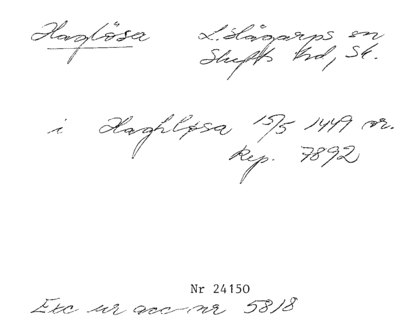 Haglösa L. Slågarps sn
Skytts hd, Sk.
i Haghløsa 15/5 1449 or.
Rep. 7892
Nr 24150
Exc ur acc nr 5818